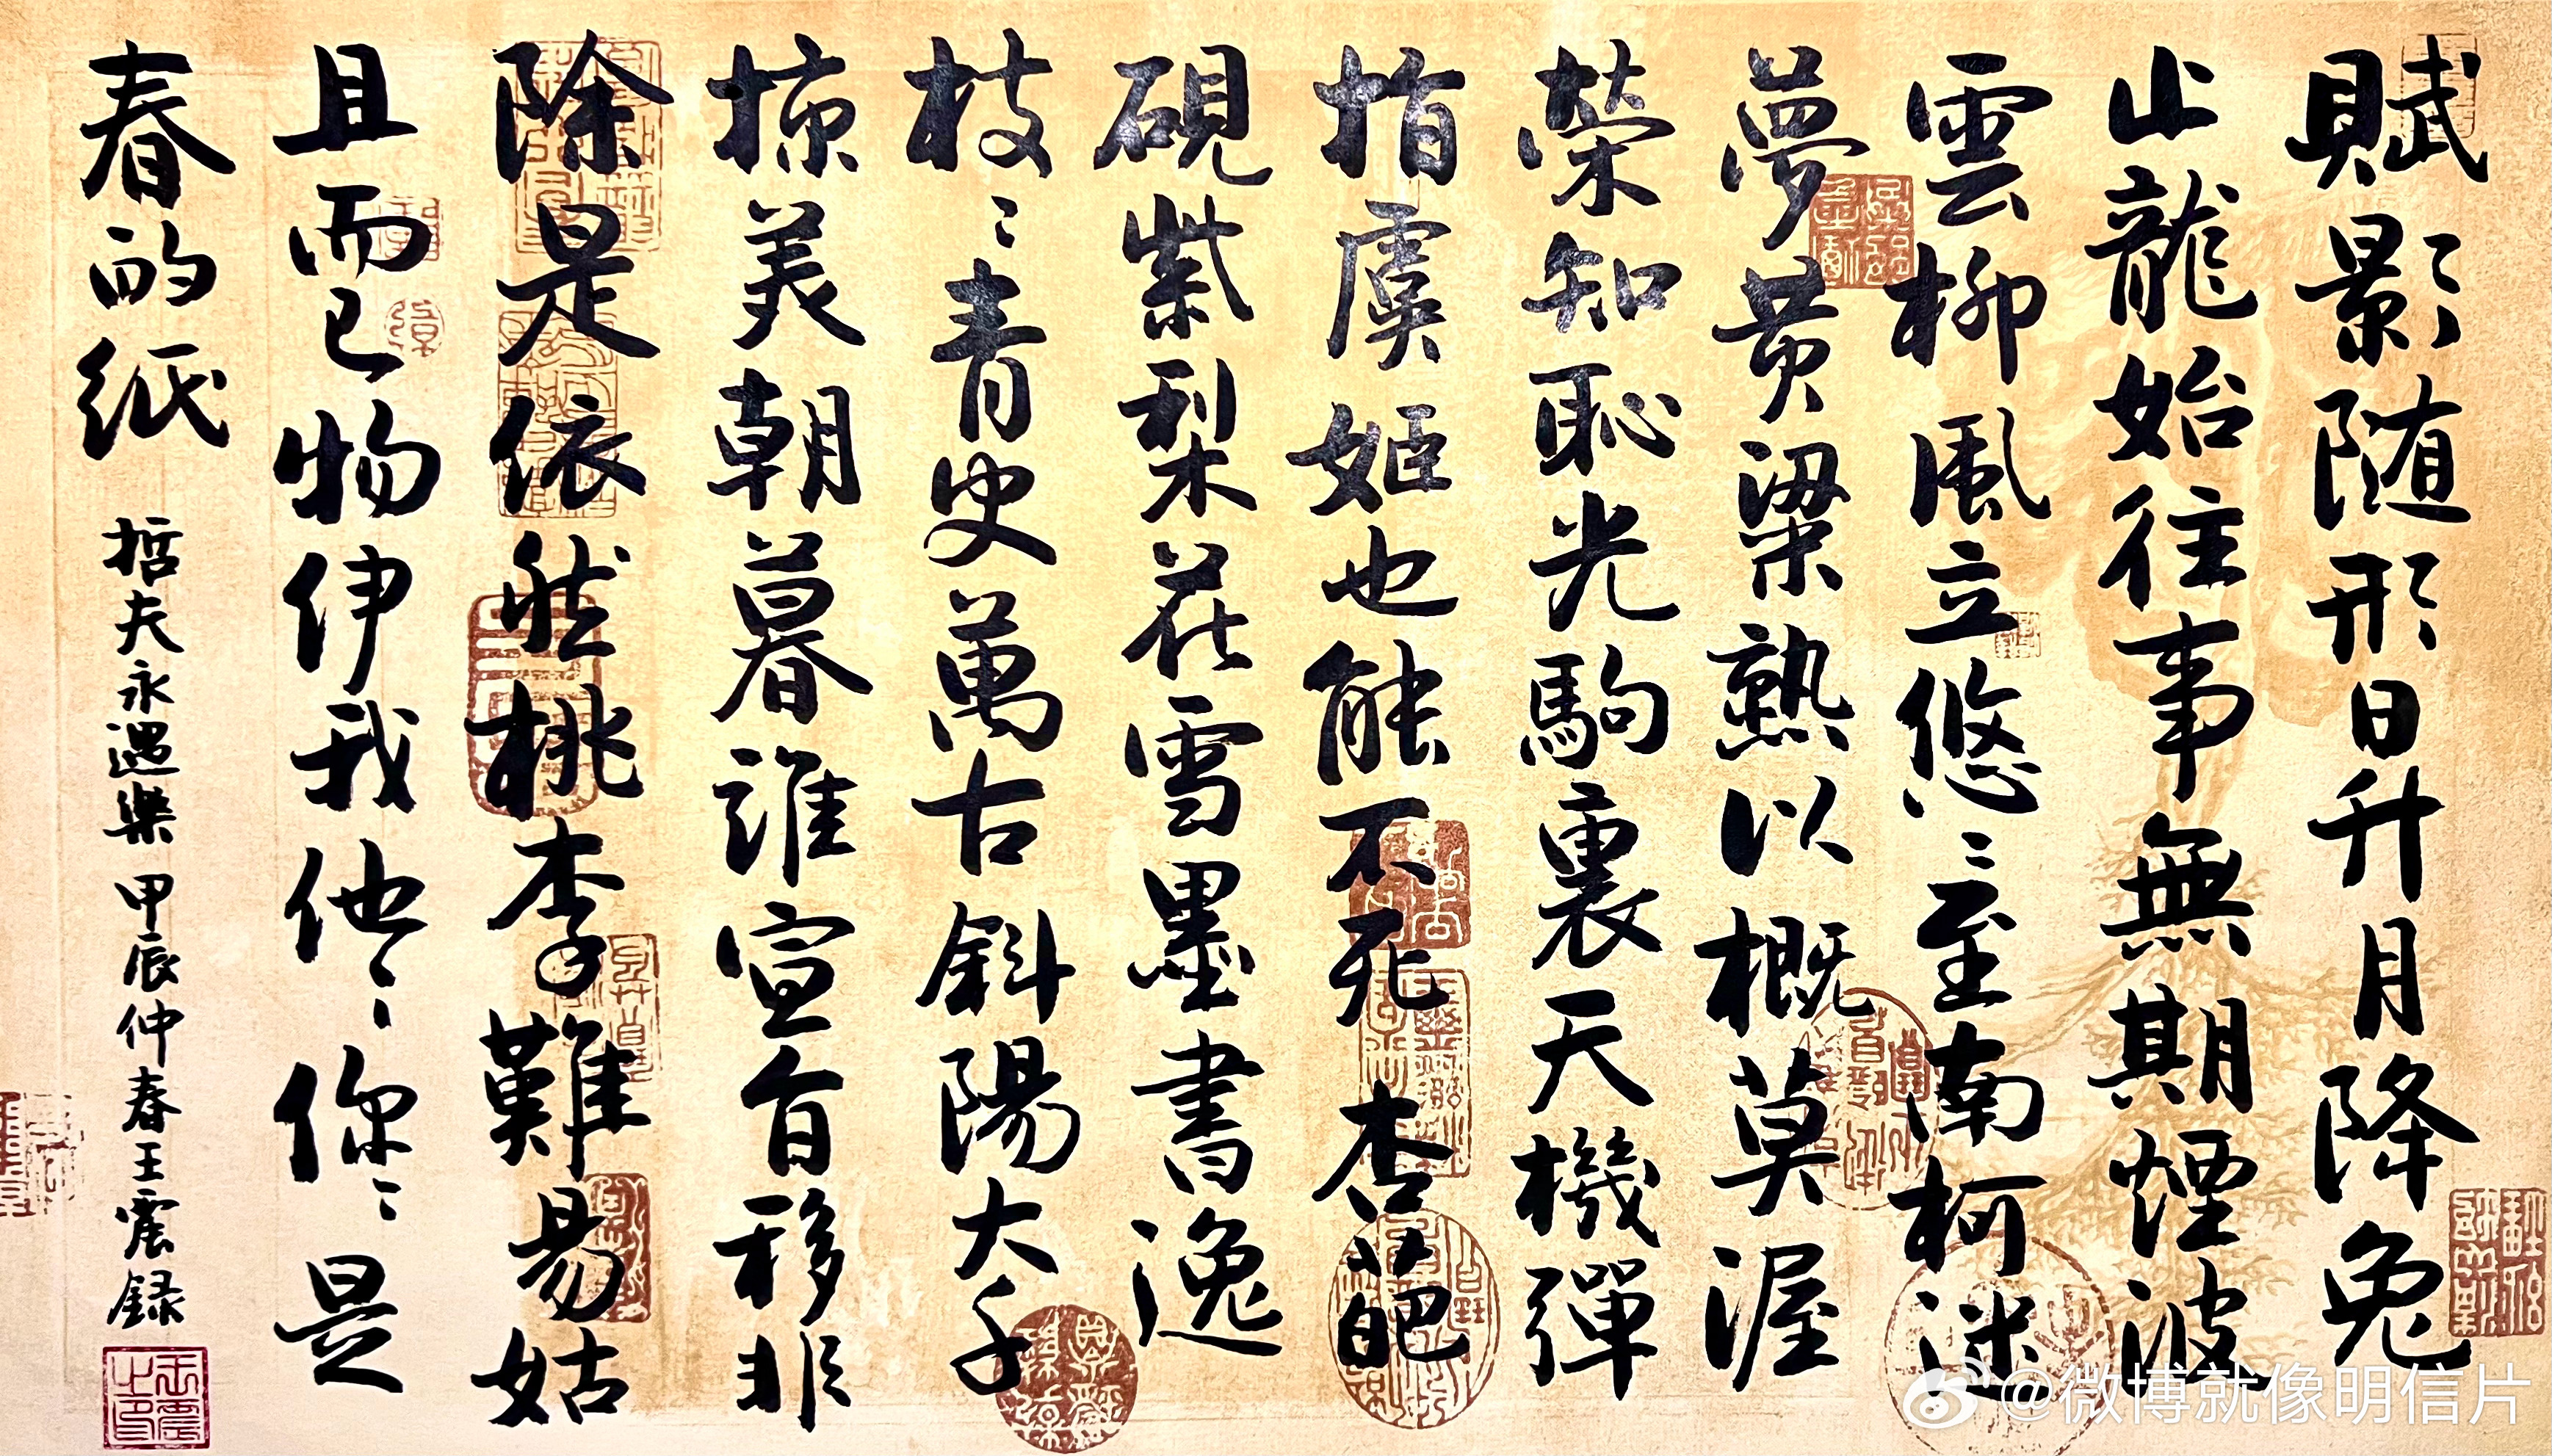 賦影随形日升月降兔
止龍始往事無期煙波
雲柳風立悠〻至南柯迷
夢黄粱熟以概莫渥
榮知恥光駒裏天機彈
指虞姬也能不死杏葩
硯紫梨花雪墨書逸
枝〻青史萬古斜陽大千
掠美朝暮誰宣旨移非
除是依然桃李難易姑
且而已物伊我他〻你〻是
春的紙
哲夫永遇樂甲辰仲春王震録
@微博就像明信片